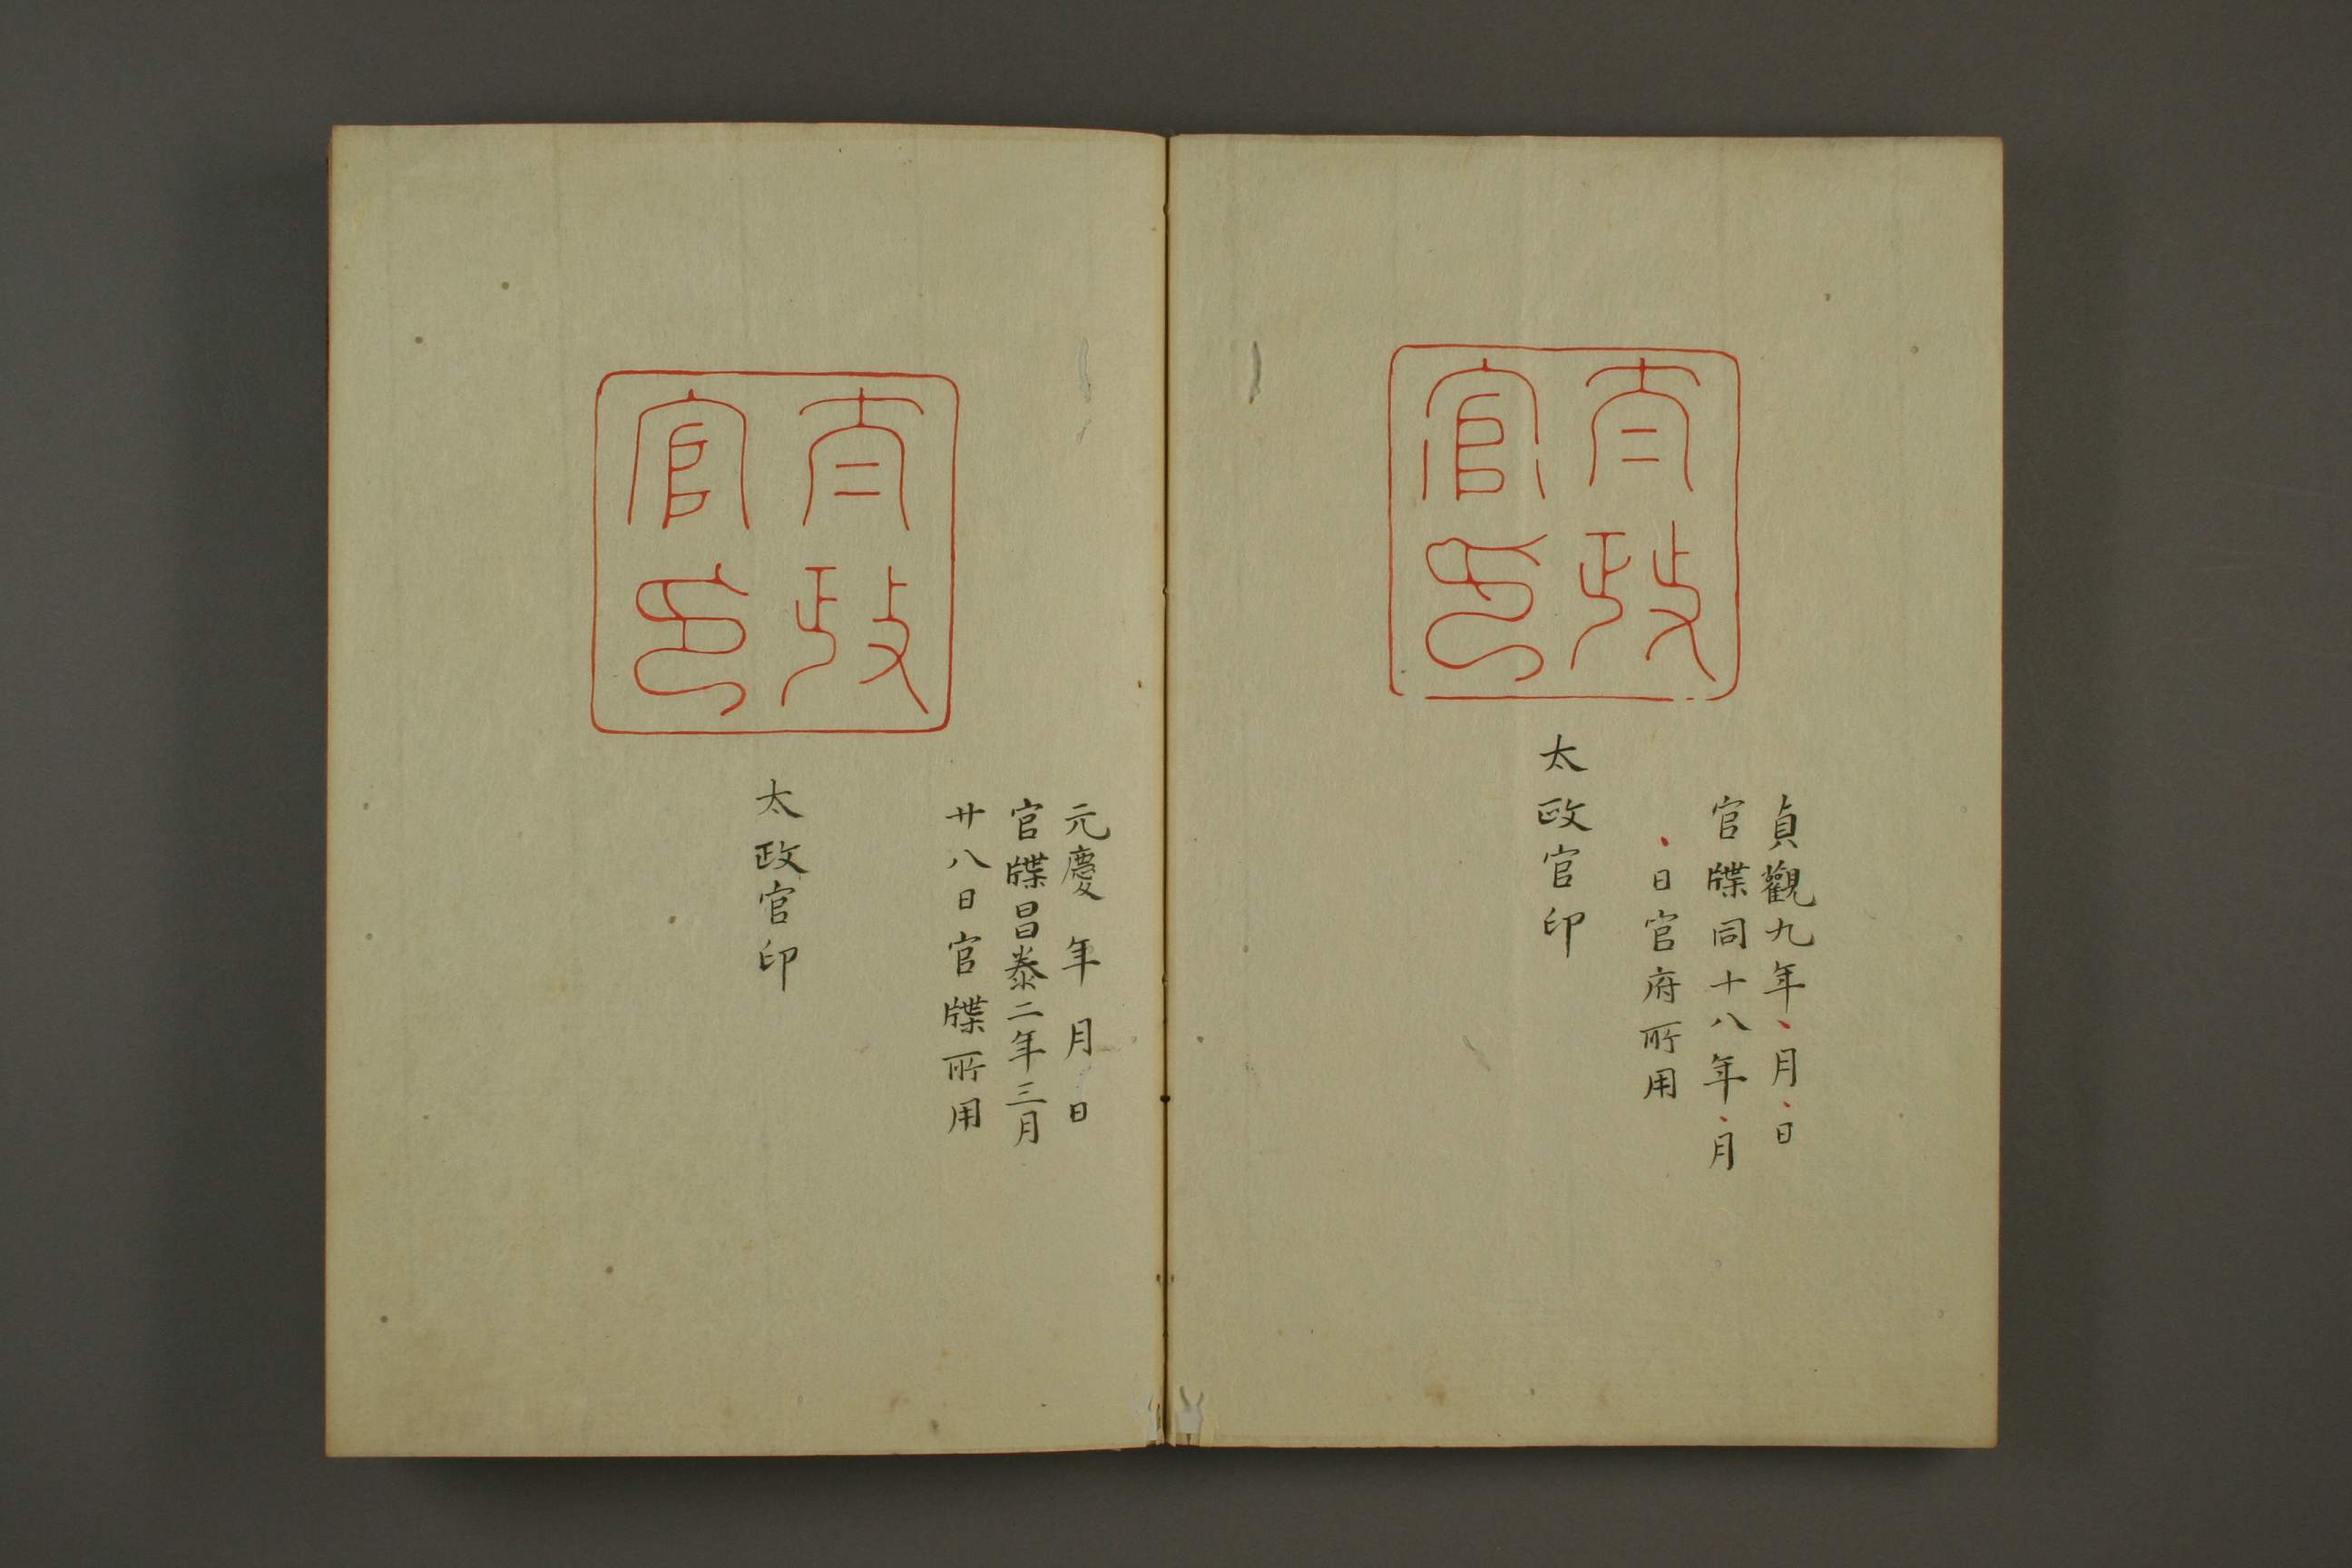 太政
官印
貞觀九年、月、日
官牒同十八年、月
、日官府所用
太政官印
太政
官印
元慶　年　月　日
官牒昌泰二年三月
廿八日官牒所用
太政官印